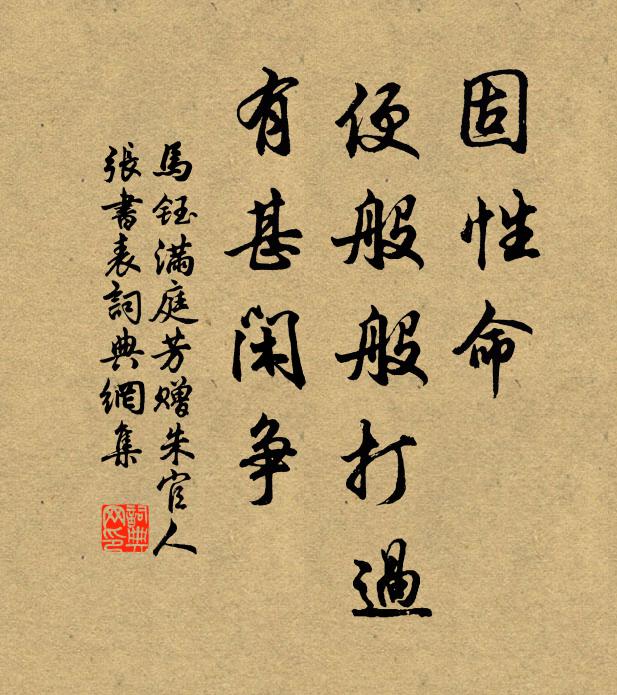 固性命
便般般打過
有甚閑争
馬鈺滿庭芳赠朱官人
張書表詞典網集
詞典网印